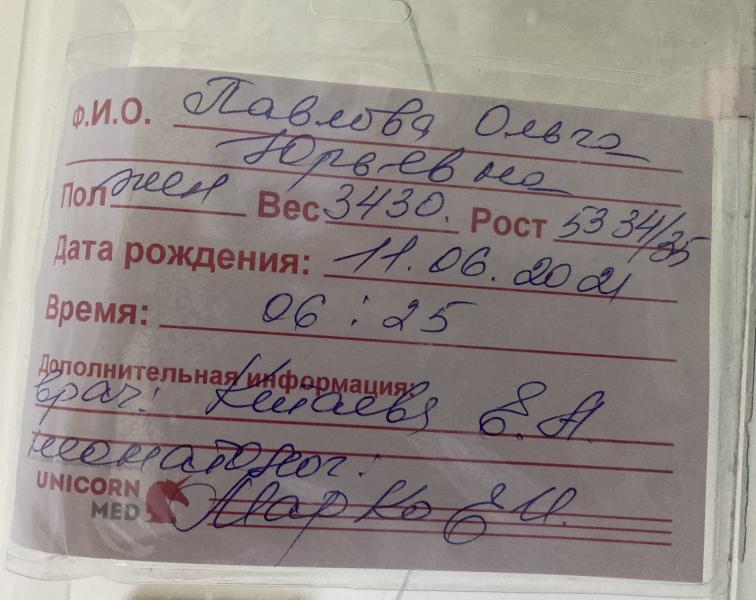 Ф.И.О. Павлова Ольга
Юрьевна
Пол жен Вес 3430. Рост 53 34/35
Дата рождения: 11.06.2021
Время: 06:25
Дополнительная информация:
врач: Китаева Е.А.
неонатолог:
UNICORN
MED Марко Е.И.